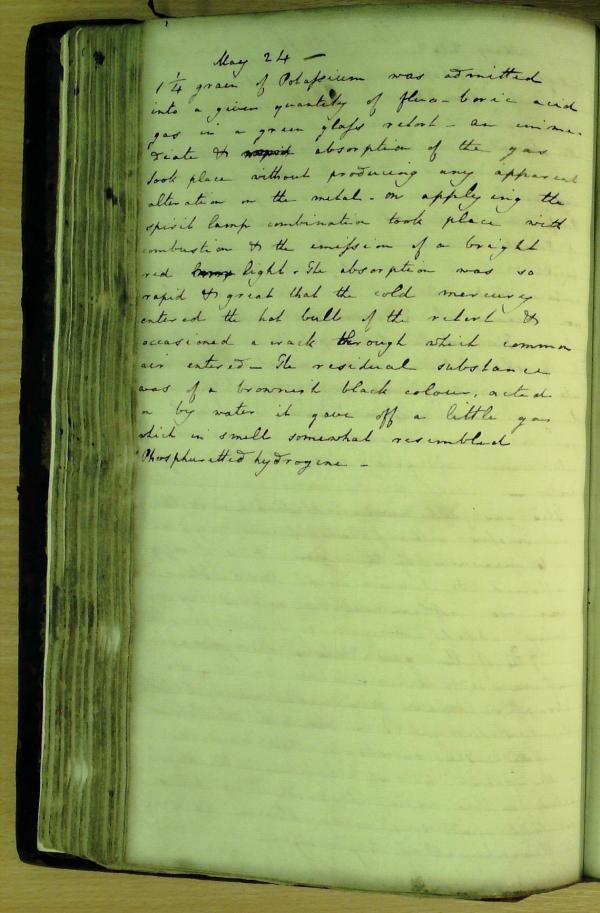 May 24 —
1 1/4 grain of Potassium was admitted
into a given quantity of fluo-boric acid
gas in a green glass retort - an imme-
diate & rapid absorption of the gas
took place without producing any apparent
alteration on the metal - on applying the
spirit lamp combination took place with
combustion & the emission of a bright
red light. The absorption was so
rapid & great that the cold mercury
entered the hot bulb of the retort &
occasioned a crack through which common
air entered - The residual substance
was of a brownish black colour, acted
on by water it gave off a little gas
which in smell somewhat resembled
Phosphuretted hydrogene -